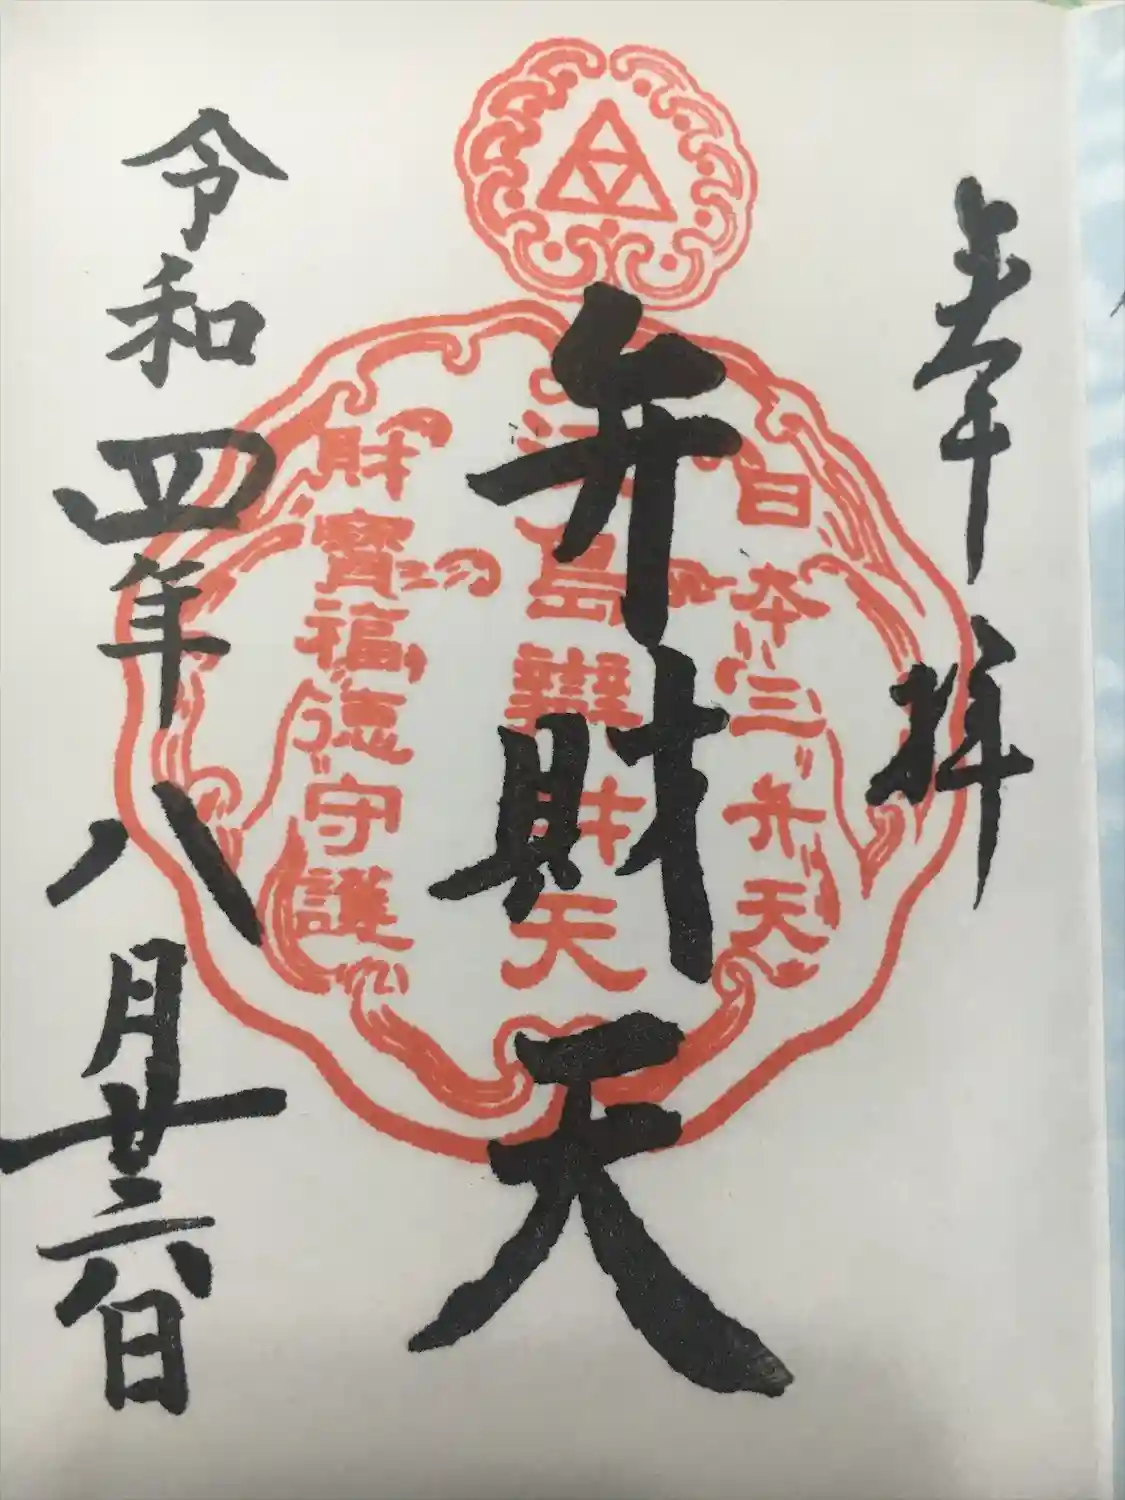 奉拝
日本三弁天
弁財天
江島辨財天
財寶福徳守護
令和四年八月廿六日